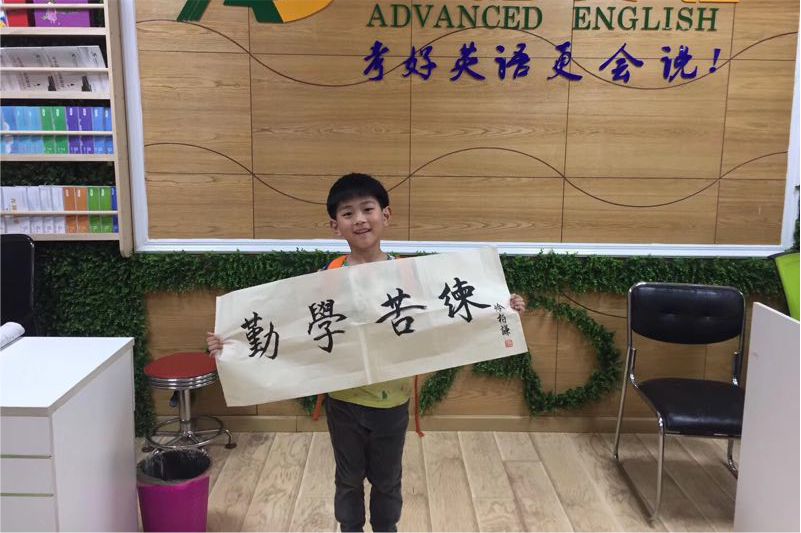 ADVANCED ENGLISH
考好英语更会说!
勤學苦練